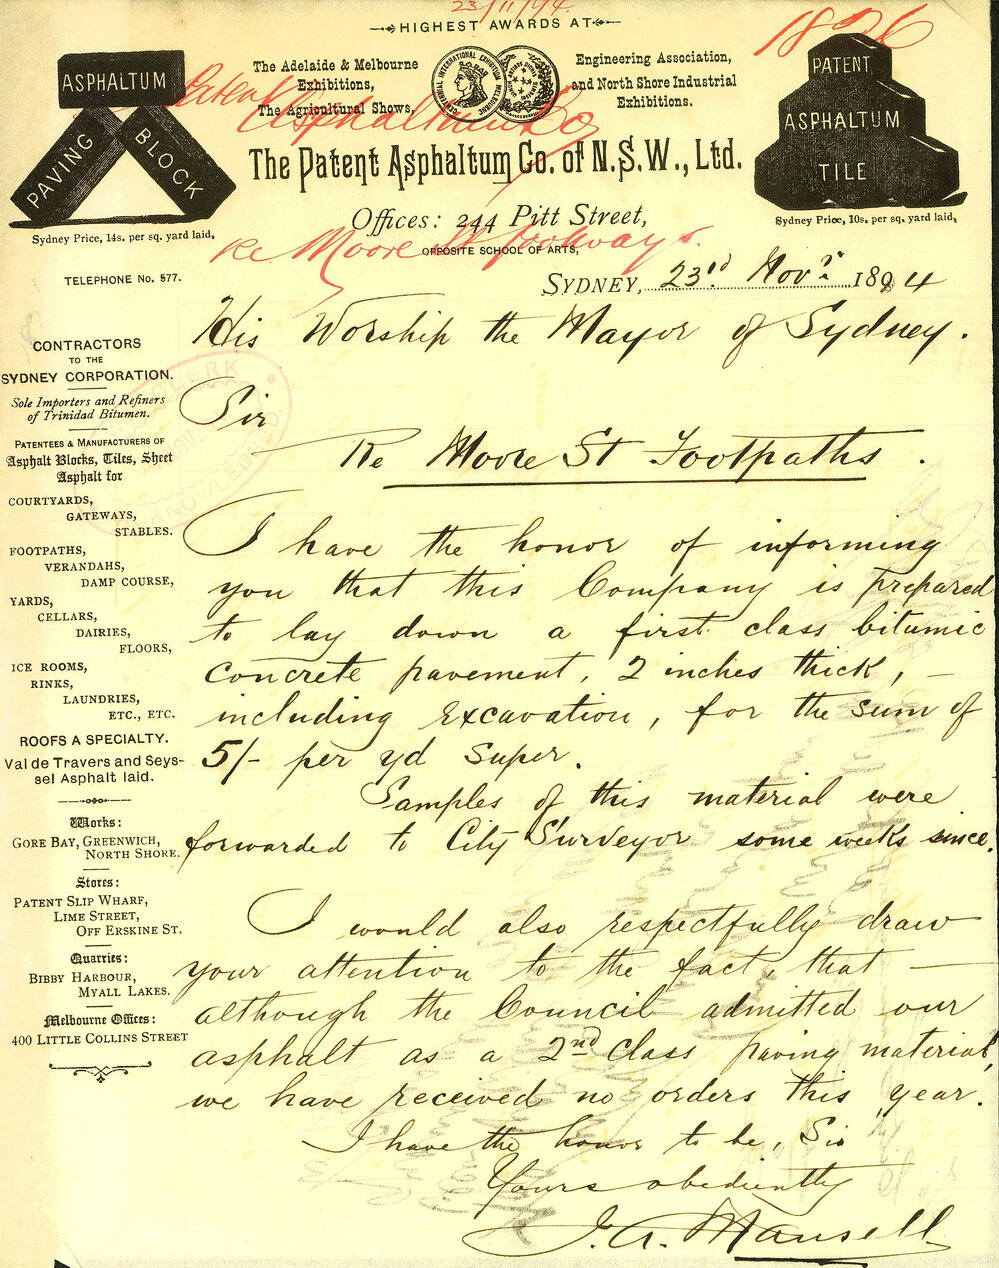 23/11/94.
HIGHEST AWARDS AT
1826
The Adelaide & Melbourne
Exhibitions,
The Agricultural Shows,
CENTENNIAL INTERNATIONAL EXHIBITION MELBOURNE
Engineering Association,
and North Shore Industrial
Exhibitions.
ASPHALTUM
PAVING
BLOCK
Sydney Price, 14s. per sq. yard laid,
PATENT
ASPHALTUM
TILE
Sydney Price, 10s. per sq. yard laid,
Patent
Asphaltum Co
The Patent Asphaltum Co. of N.S.W., Ltd.
Offices: 244 Pitt Street,
OPPOSITE SCHOOL OF ARTS,
Re Moore St footways.
TELEPHONE No. 577.
SYDNEY, 23rd Novr 1894
CONTRACTORS
TO THE
SYDNEY CORPORATION.
Sole Importers and Refiners
of Trinidad Bitumen.
PATENTEES & MANUFACTURERS OF
Asphalt Blocks, Tiles, Sheet
Asphalt for
COURTYARDS,
GATEWAYS,
STABLES.
FOOTPATHS,
VERANDAHS,
DAMP COURSE,
YARDS,
CELLARS,
DAIRIES,
FLOORS,
ICE ROOMS,
RINKS,
LAUNDRIES,
ETC., ETC.
ROOFS A SPECIALTY.
Val de Travers and Seys-
sel Asphalt laid.
Works:
GORE BAY, GREENWICH,
NORTH SHORE.
Stores:
PATENT SLIP WHARF,
LIME STREET,
OFF ERSKINE ST.
Quarries:
BIBBY HARBOUR,
MYALL LAKES.
Melbourne Offices:
400 LITTLE COLLINS STREET
His Worship the Mayor of Sydney.
Sir
Re Moore St Footpaths.
I have the honor of informing
you that this Company is prepared
to lay down a first class bitumic
concrete pavement, 2 inches thick, –
including Excavation, for the sum of
5/- per yd super.
Samples of this material were
forwarded to City Surveyor some weeks since.
I would also respectfully draw
your attention to the fact, that –
although the Council admitted our
asphalt as a 2nd Class paving material,
we have received no orders this year.
I have the honor to be, Sir
Yours obediently
J. A. Mansell